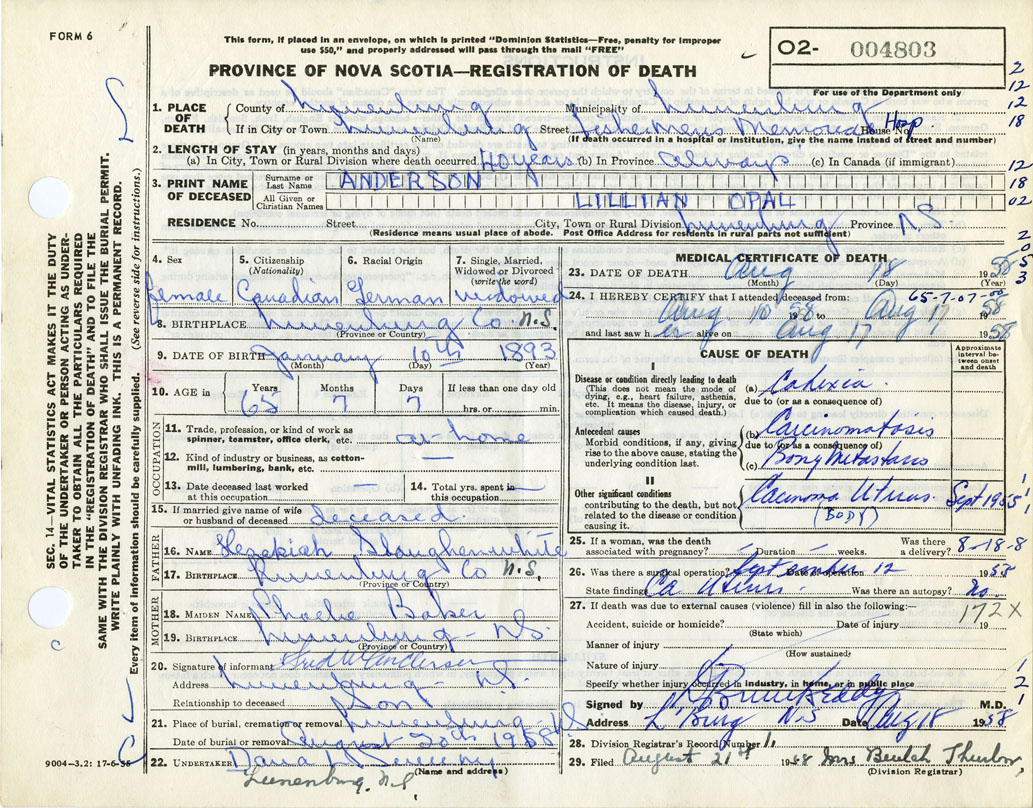 FORM 6
This form, if placed in an envelope, on which is printed "Dominion Statistics—Free, penalty for improper
use $50," and properly addressed will pass through the mail "FREE"
02- 004803
PROVINCE OF NOVA SCOTIA—REGISTRATION OF DEATH
For use of the Department only
1. PLACE OF DEATH
County of Lunenburg Municipality of Lunenburg
If in City or Town Lunenburg Street Fishermens Memorial Hosp. House No.
(Name) (If death occurred in a hospital or institution, give the name instead of street and number)
2. LENGTH OF STAY (in years, months and days)
(a) In City, Town or Rural Division where death occurred 40 years (b) In Province always (c) In Canada (if immigrant)
3. PRINT NAME OF DECEASED
Surname or Last Name ANDERSON
All Given or Christian Names LILLIAN OPAL
RESIDENCE No. Street City, Town or Rural Division Lunenburg Province N.S
(Residence means usual place of abode. Post Office Address for residents in rural parts not sufficient)
2
12
12
18
12
18
02
2
0
5
3
4. Sex
Female
5. Citizenship (Nationality)
Canadian
6. Racial Origin
German
7. Single, Married, Widowed or Divorced (write the word)
widowed
8. BIRTHPLACE Lunenburg Co N.S.
(Province or Country)
9. DATE OF BIRTH January 10th 1893
(Month) (Day) (Year)
10. AGE in Years 65 Months 7 Days 7 If less than one day old
hrs. or min.
OCCUPATION
11. Trade, profession, or kind of work as spinner, teamster, office clerk, etc. at home
12. Kind of industry or business, as cotton-mill, lumbering, bank, etc. —
13. Date deceased last worked at this occupation
14. Total yrs. spent in this occupation —
15. If married give name of wife or husband of deceased deceased.
FATHER
16. NAME Hezekiah Slaughenwhite
17. BIRTHPLACE Lunenburg Co N.S.
(Province or Country)
MOTHER
18. MAIDEN NAME Phoebe Baker
19. BIRTHPLACE Lunenburg - N.S.
(Province or Country)
20. Signature of informant Fred W Anderson
Address Lunenburg - N.S.
Relationship to deceased Son
21. Place of burial, cremation or removal Lunenburg - N.S
Date of burial or removal August 20th 1958
22. UNDERTAKER Dana Sweeny
(Name and address)
Lunenburg, N.S,
9004—3.2: 17-6-55
MEDICAL CERTIFICATE OF DEATH
23. DATE OF DEATH Aug 18 1958
(Month) (Day) (Year)
65-7-07-00
24. I HEREBY CERTIFY that I attended deceased from:
Aug 10 1958 to Aug 17 1958
and last saw her alive on Aug 17 1958
CAUSE OF DEATH
Approximate interval between onset and death
I
Disease or condition directly leading to death
(This does not mean the mode of dying, e.g., heart failure, asthenia, etc. It means the disease, injury, or complication which caused death.)
(a) Cahexia
due to (or as a consequence of)
Antecedent causes
Morbid conditions, if any, giving rise to the above cause, stating the underlying condition last.
(b) Carcinomatosis
due to (or as a consequence of)
(c) Bony Metastasis
II
Other significant conditions
contributing to the death, but not related to the disease or condition causing it.
Carcinoma Uterus (BODY) Sept 1955
25. If a woman, was the death associated with pregnancy? — Duration — weeks. Was there a delivery? 8-18-8
26. Was there a surgical operation? Date of operation September 12 1955
State findings Ca Uterus. Was there an autopsy? No
27. If death was due to external causes (violence) fill in also the following:—
172X
Accident, suicide or homicide? Date of injury 19
(State which)
Manner of injury
(How sustained)
Nature of injury
Specify whether injury occurred in industry, in home, or in public place
Signed by M.D.
Address L'Burg N.S Date Aug 18 1958
28. Division Registrar's Record Number
29. Filed August 21st 1958 Mrs Beulah
(Division Registrar)
1
1
1
2
1
SEC. 14—VITAL STATISTICS ACT MAKES IT THE DUTY
OF THE UNDERTAKER OR PERSON ACTING AS UNDER-
TAKER TO OBTAIN ALL THE PARTICULARS REQUIRED
IN THE "REGISTRATION OF DEATH" AND TO FILE THE
SAME WITH THE DIVISION REGISTRAR WHO SHALL ISSUE THE BURIAL PERMIT.
WRITE PLAINLY WITH UNFADING INK. THIS IS A PERMANENT RECORD.
Every item of information should be carefully supplied. (See reverse side for instructions.)